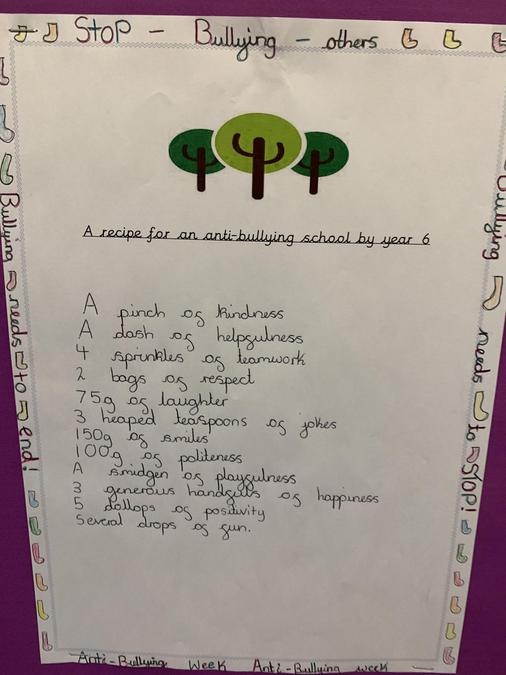 Stop - Bullying - others
A recipe for an anti-bullying school by year 6
A pinch of kindness
A dash of helpfulness
4 sprinkles of teamwork
2 bags of respect
75g of laughter
3 heaped teaspoons of jokes
150g of smiles
100g of politeness
A smidgen of playfulness
3 generous handfuls of happiness
5 dollops of positivity
Several drops of fun.
Bullying needs to end!
Bullying needs to Stop!
Anti-Bullying Week Anti-Bullying week